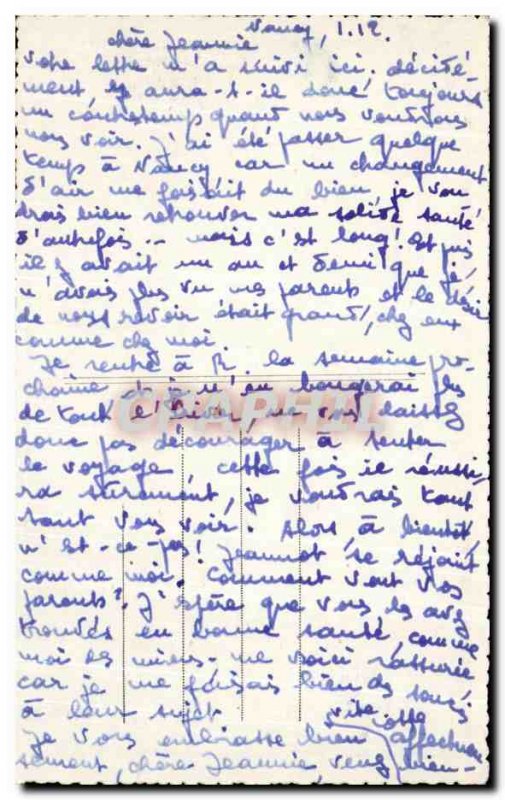 Nancy, 1.12.
chère Jeannie
Votre lettre m'a suivi ici. décidé-
ment y aura-t-il donc toujours
un contretemps quand nous voudrons
nous voir. J'ai été passer quelque
temps à Nancy car un changement
d'air me faisait du bien, je vou
drais bien retrouver ma solide santé
d'autrefois .. mais c'est long! Et puis
il y avait un an et demi que je
n'avais plus vu mes parents et le désir
de nous revoir était grand, chez eux
comme chez moi.
Je rentre à R. la semaine pro-
chaine et n'en bougerai plus
de tout l'hiver, ne vous laissez
donc pas décourager à tenter
le voyage cette fois il réussi,
ra sûrement, je voudrais tant
tant vous voir. Alors à bientôt,
n'est-ce-pas! Jeannot se réjouit
comme moi. Comment vont vos
parents? J'espère que vous les avez
trouvés en bonne santé comme
moi les miens - me voici rassurée
car je me faisais bien des soucis
à leur sujet
Je vous embrasse bien affectueu-
sement, chère Jeannie, venez bien-
vite
CPAPHIL